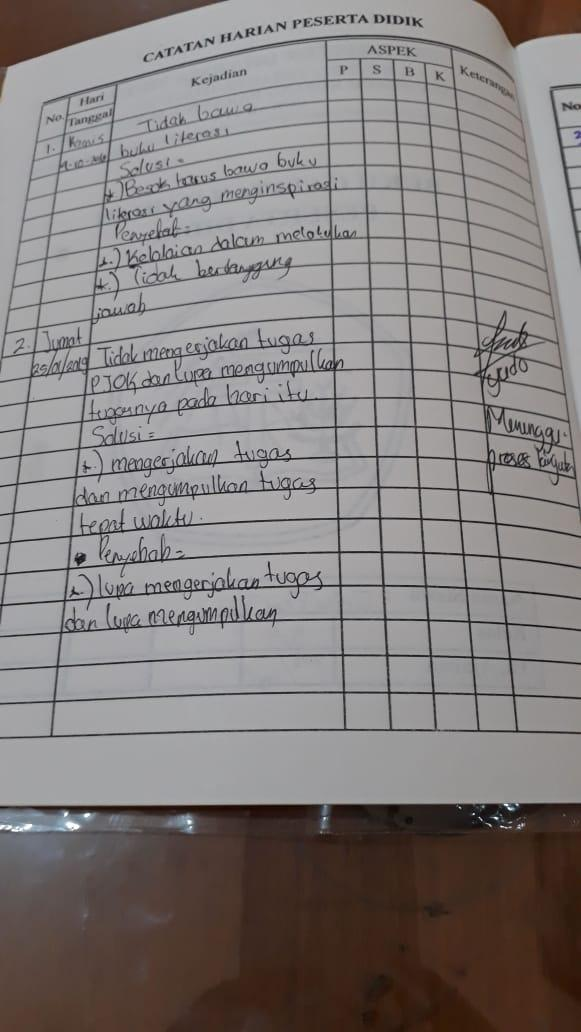 CATATAN HARIAN PESERTA DIDIK
No.
Hari
Tanggal
Kejadian
ASPEK
P S B K
Keterangan
No
1. Kamis Tidak bawa
buku literasi
Solusi =
*) Besok harus bawa buku
literasi yang menginspirasi
Penyebab =
*.) Kelalaian dalam melakukan
*.) Tidak bertanggung
jawab
2. Jumat
Tidak mengerjakan tugas
PJOK dan lupa mengumpulkan
tugasnya pada hari itu.
Solusi =
*.) mengerjakan tugas
dan mengumpulkan tugas
tepat waktu.
• Penyebab =
*.) lupa mengerjakan tugas
dan lupa mengumpulkan
Menunggu
proses